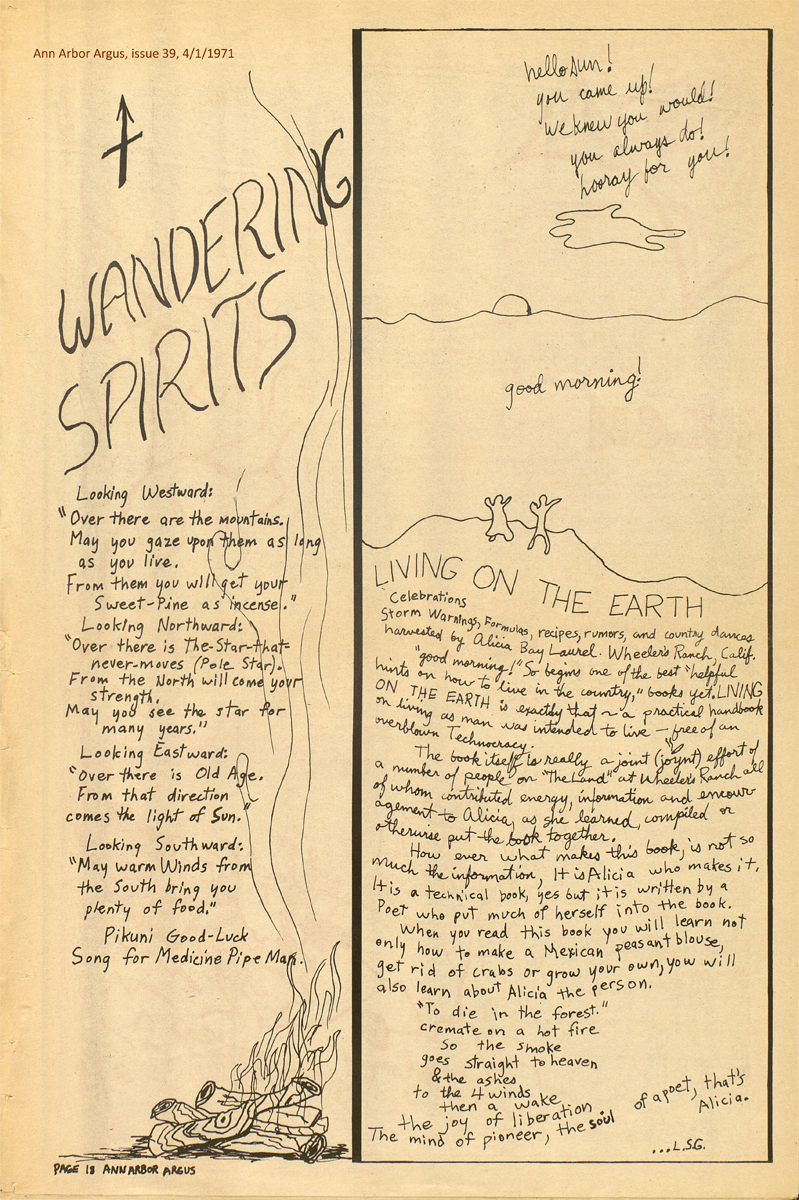 Ann Arbor Argus, issue 39, 4/1/1971
WANDERING
SPIRITS
Looking Westward:
"Over there are the mountains.
May you gaze upon them as long
as you live.
From them you will get your
Sweet-Pine as incense."
Looking Northward:
"Over there is The-Star-that-
never-moves (Pole Star).
From the North will come your
strength.
May you see the star for
many years."
Looking Eastward:
"Over there is Old Age.
From that direction
comes the light of Sun."
Looking Southward:
"May warm Winds from
the South bring you
plenty of food."
Pikuni Good-Luck
Song for Medicine Pipe Man.
PAGE 18 ANN ARBOR ARGUS
hello sun!
you came up!
We knew you would!
you always do!
hooray for you!
good morning!
LIVING ON THE EARTH
Celebrations
Storm Warnings, Formulas, recipes, rumors, and country dances
harvested by Alicia Bay Laurel. Wheeler's Ranch, Calif.
"good morning!" So begins one of the best "helpful
hints on how to live in the country," books yet. LIVING
ON THE EARTH is exactly that ~ a practical handbook
on living as man was intended to live - free of an
overblown Technocracy.
The book itself is really a joint (joynt) effort of
a number of people on "The Land" at Wheeler's Ranch all
of whom contributed energy, information and encour-
agement to Alicia, as she learned, compiled or
otherwise put the book together.
How ever what makes this book, is not so
much the information, It is Alicia who makes it,
It is a technical book, yes but it is written by a
Poet who put much of herself into the book.
When you read this book you will learn not
only how to make a Mexican peasant blouse,
get rid of crabs or grow your own, you will
also learn about Alicia the person.
"To die in the forest."
cremate on a hot fire
So the smoke
goes straight to heaven
& the ashes
to the 4 winds
then a wake
the joy of liberation.
The mind of pioneer, the soul of a poet, that's
Alicia.
...L.S.G.